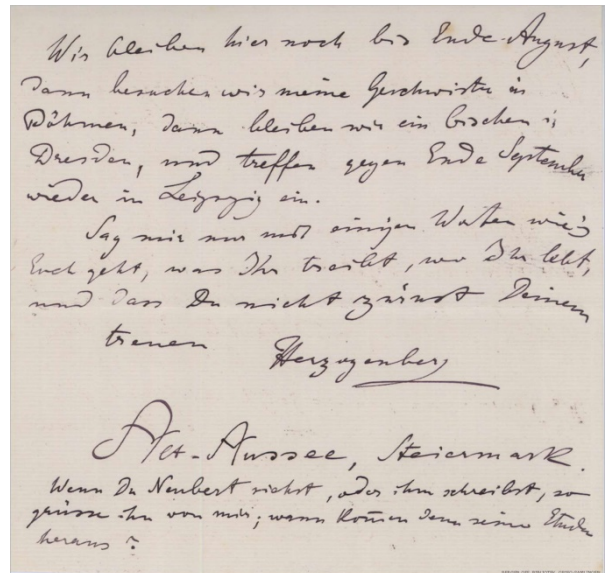 Wir bleiben hier noch bis Ende August,
dann besuchen wir meine Geschwister in
Böhmen, dann bleiben wir ein bischen i
Dresden, und treffen gegen Ende September
wieder in Leipzig ein.
Sag mir nur mit einigen Worten wie's
Euch geht, was Ihr treibt, wo Ihr lebt,
und dass Du nicht zürnst Deinem
treuen Herzogenberg
Alt-Aussee, Steiermark.
Wenn Du Neubert siehst, oder ihm schreibst, so
grüsse ihn von mir; wann komen denn seine Etuden
heraus?